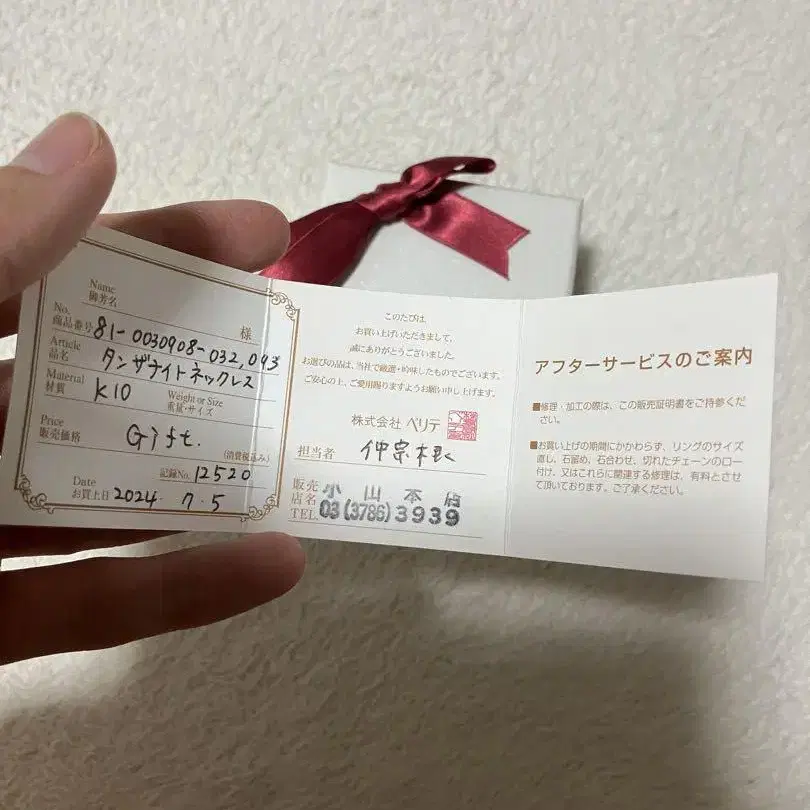 Name
御芳名
様
No.
商品番号 81-0030908-032,093
Article
品名 タンザナイトネックレス
Material
材質 K10
Weight or Size
重量・サイズ
Price
販売価格 Gift.
(消費税込み)
記録No. 12520
Date
お買上日 2024. 7. 5
このたびは
お買い上げいただきまして、
誠にありがとうございました。
お選びの品は、当社で厳選・吟味したものでございます。
ご安心の上、ご愛用賜りますようお願い申し上げます。
株式会社 ベリテ
担当者 仲宗根
販売
店名 小山本店
TEL. 03(3786)3939
アフターサービスのご案内
■修理・加工の際は、この販売証明書をご持参くだ
さい。
■お買い上げの期間にかかわらず、リングのサイズ
直し、石留め、石合わせ、切れたチェーンのロー
付け、又はこれらに関連する修理は、有料とさせ
て頂いております。ご了承ください。